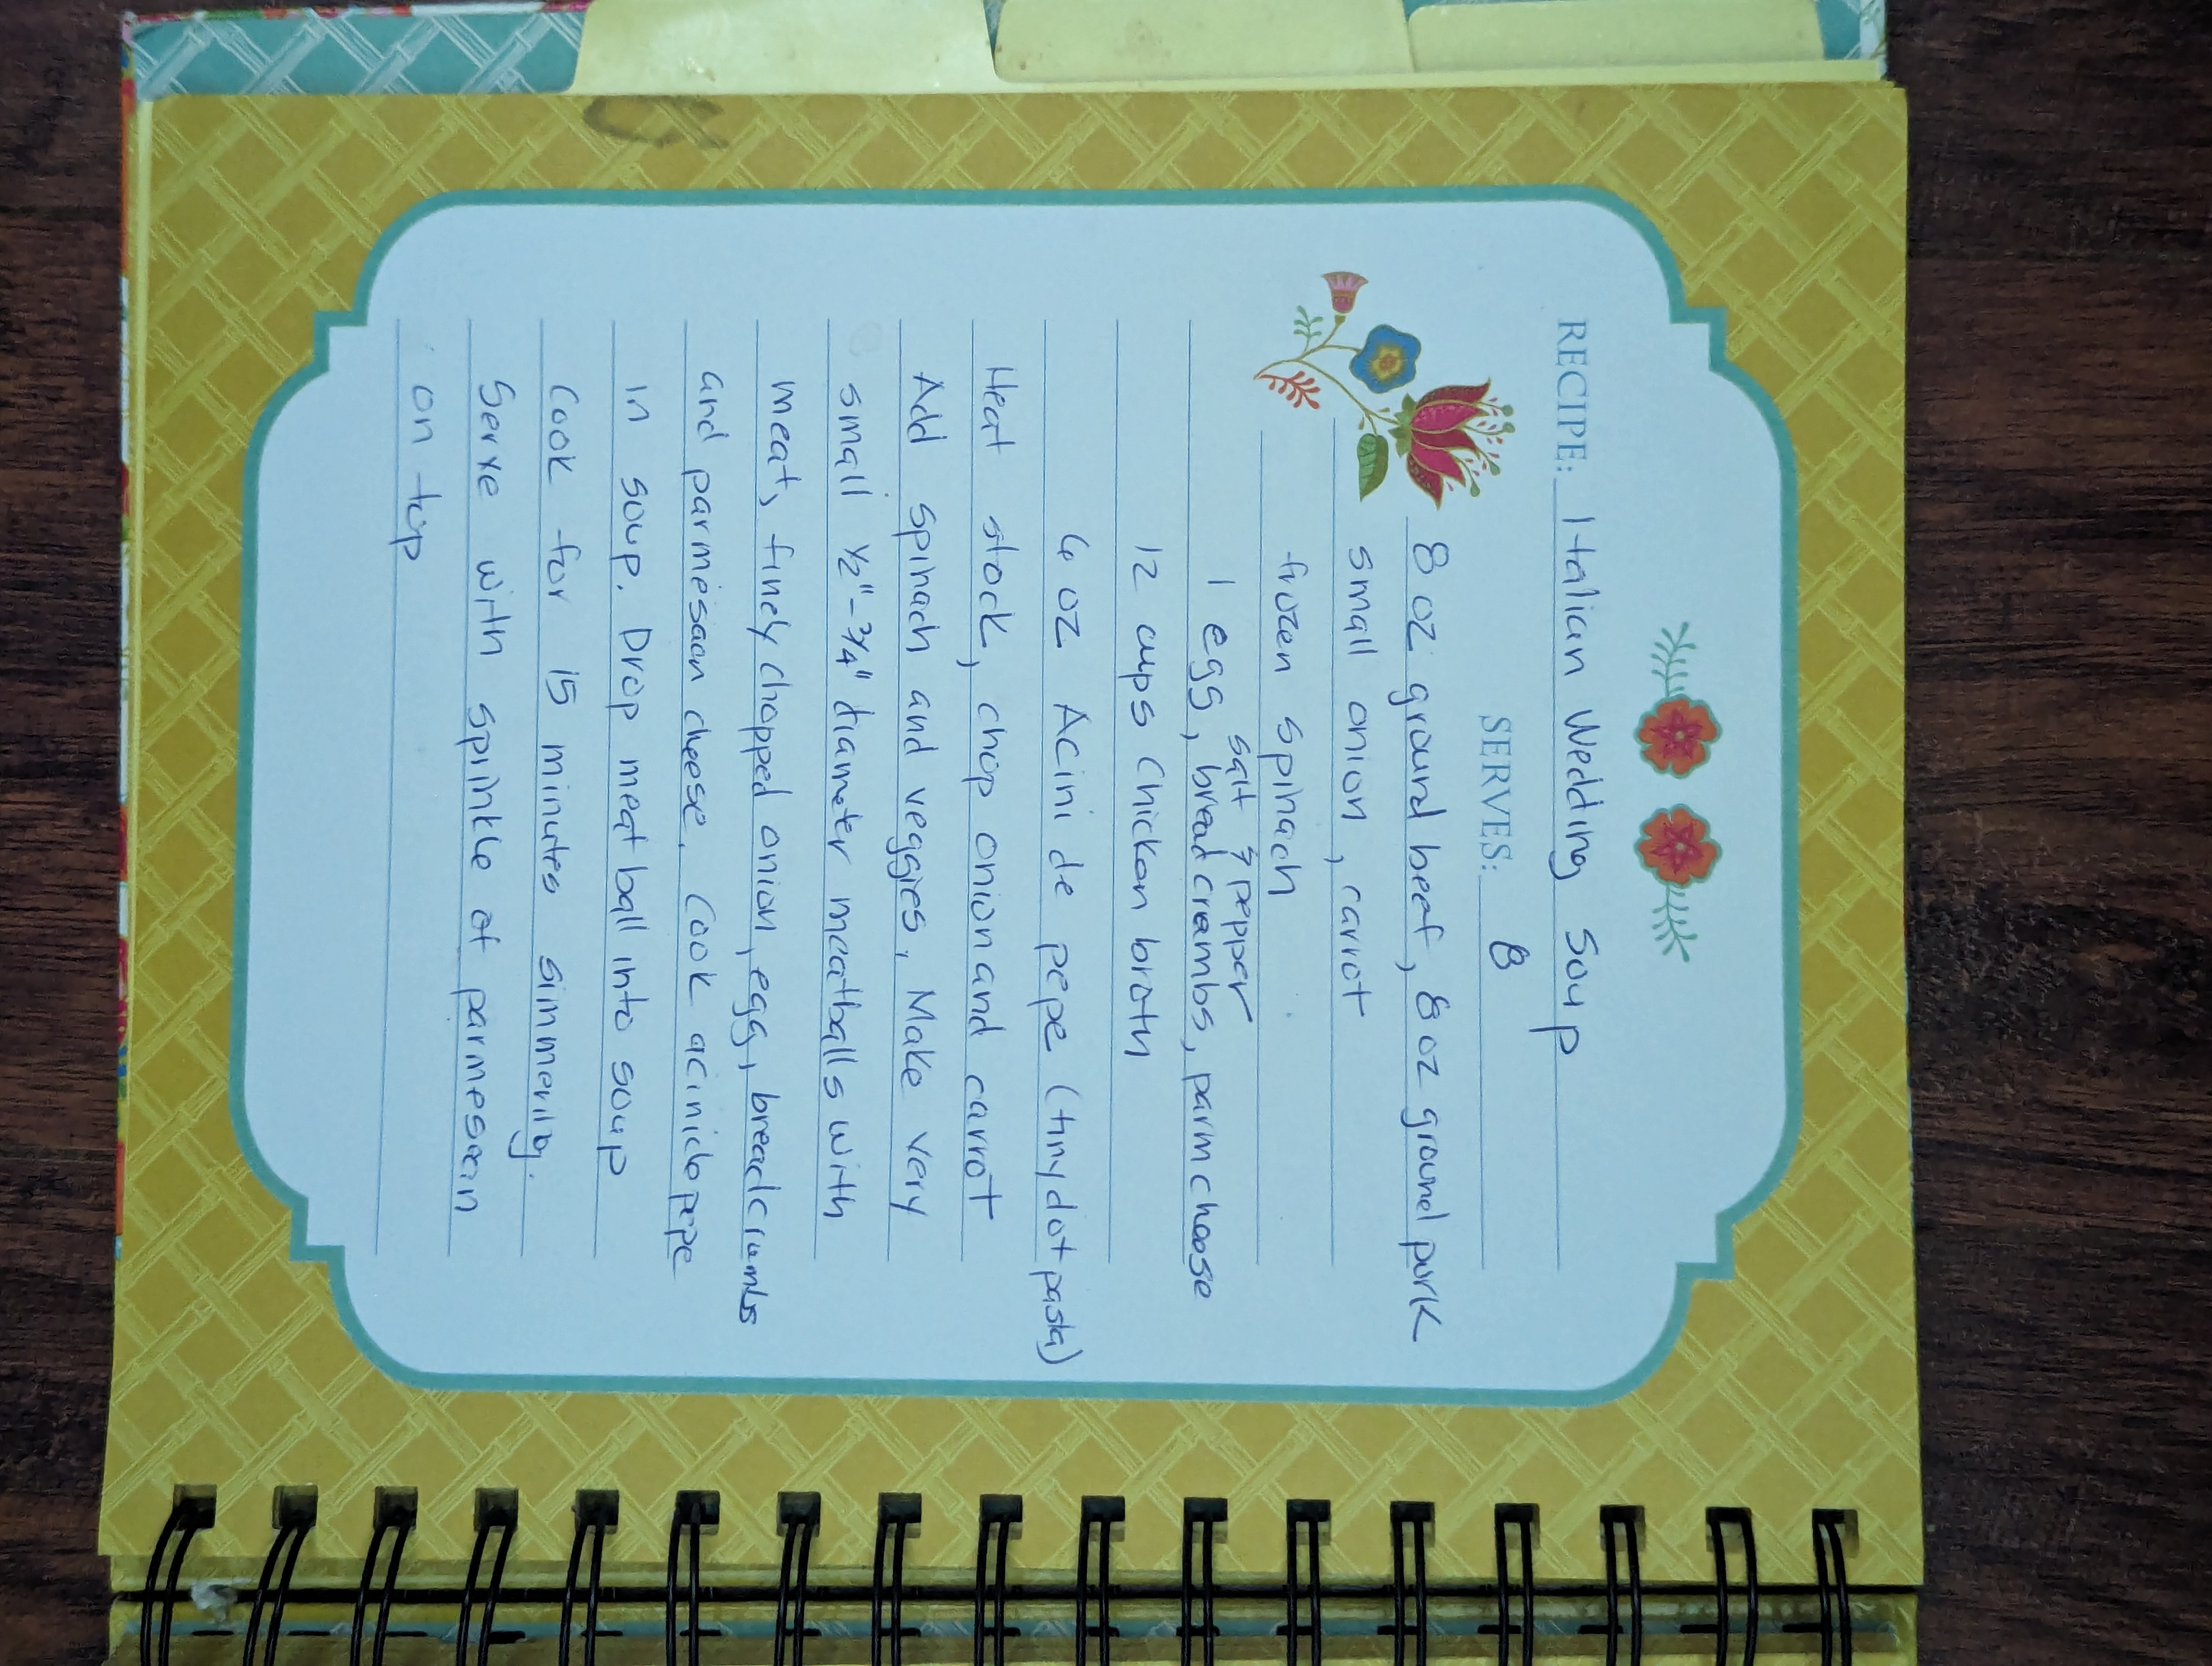 RECIPE: Italian Wedding Soup
SERVES: 8
8 oz ground beef, 8 oz ground pork
small onion, carrot
frozen spinach
salt & pepper
1 egg, bread crambs, parm cheese
12 cups Chicken broth
6 oz Acini de pepe (tiny dot pasta)
Heat stock, chop onion and carrot
Add spinach and veggies. Make very
small 1/2"-3/4" diameter meatballs with
meat, finely chopped onion, egg, breadcrumbs
and parmesaan cheese. Cook acinidepepe
in soup. Drop meatball into soup
Cook for 15 minutes simmerilg.
Serve with sprinkle of parmesean
on top